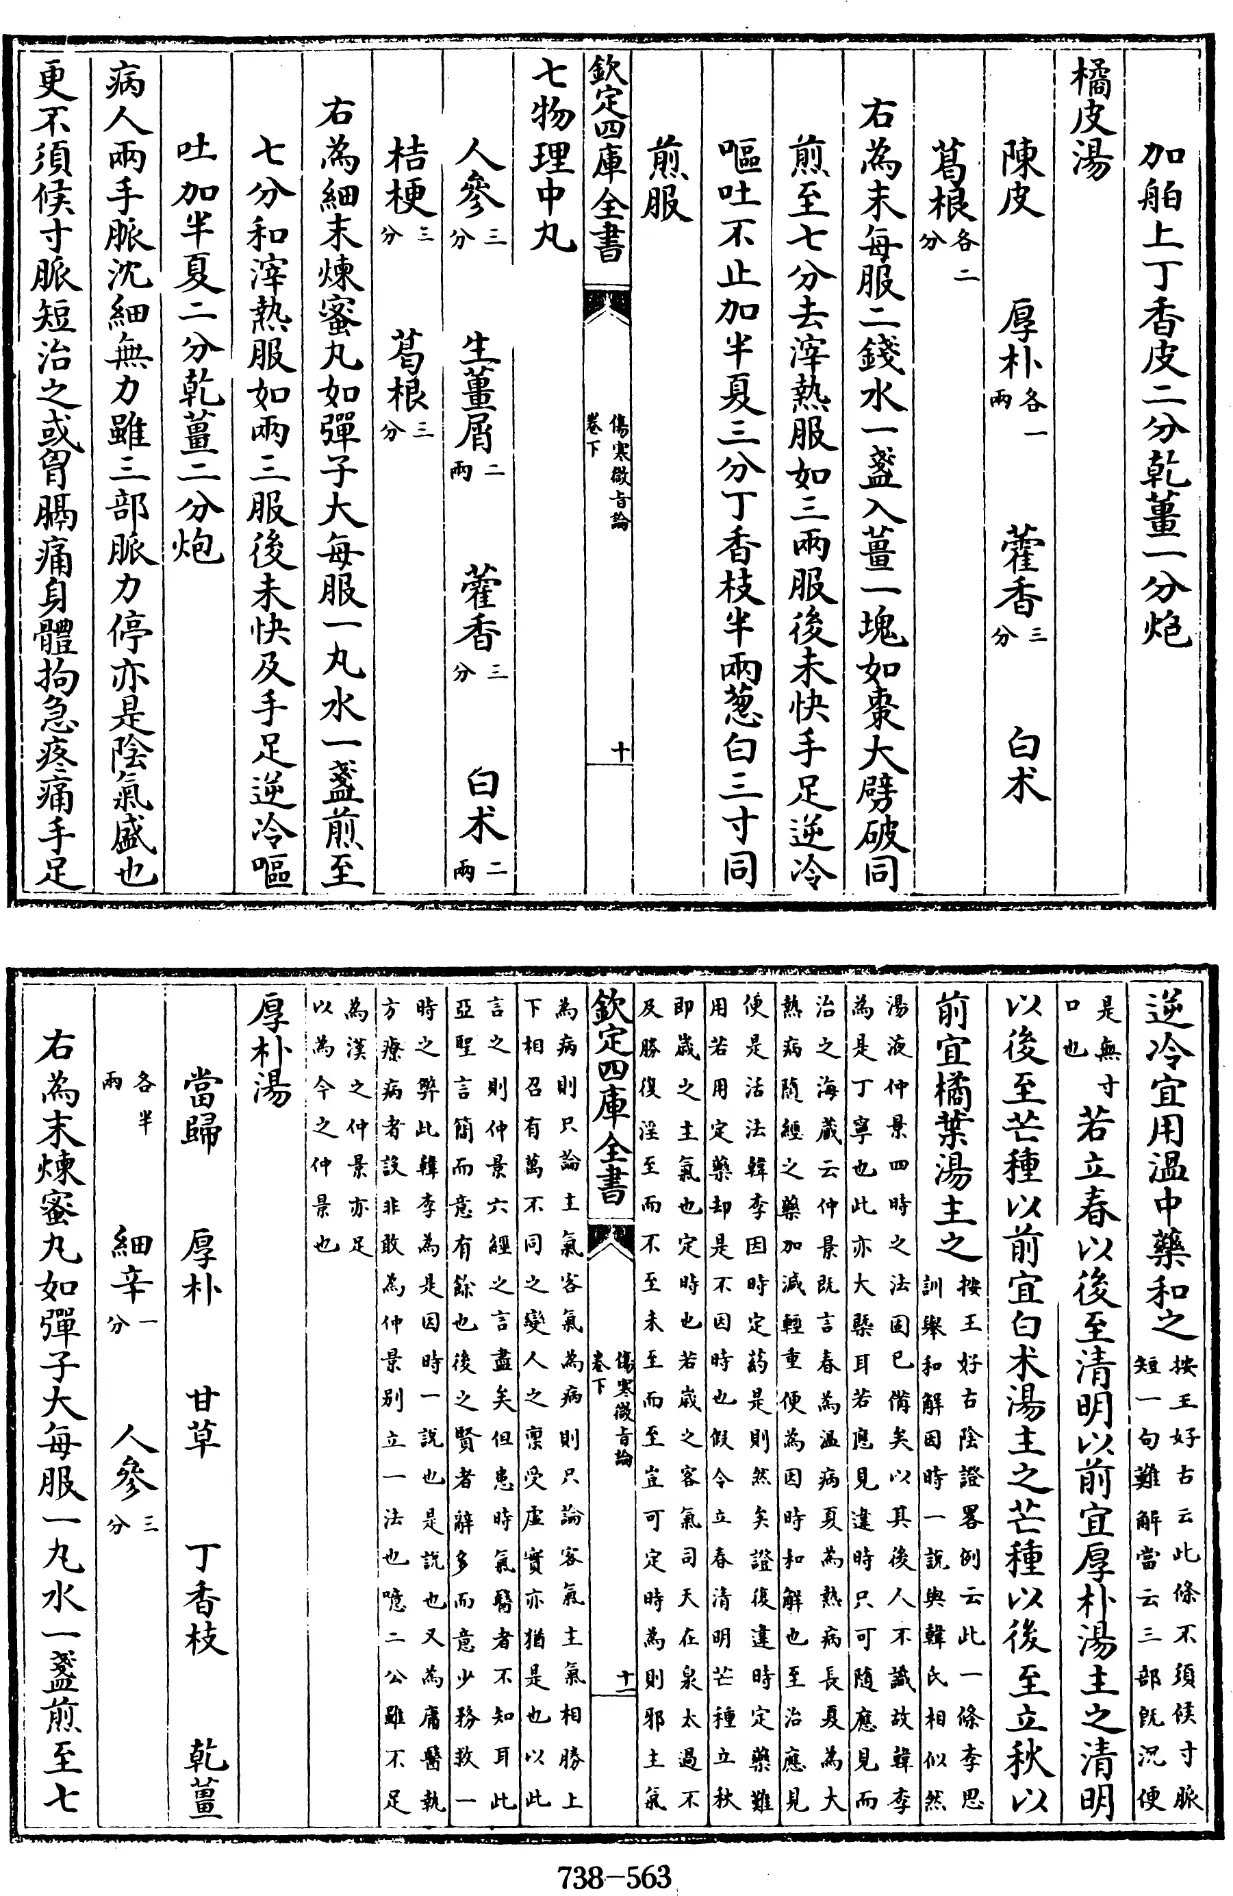 加舶上丁香皮二分乾薑一分炮
橘皮湯
陳皮 厚朴各一兩 藿香三分 白术
葛根各二分
右為末每服二錢水一盞入薑一塊如棗大劈破同
煎至七分去滓熱服如三兩服後未快手足逆冷
嘔吐不止加半夏三分丁香枝半兩葱白三寸同
煎服
欽定四庫全書
傷寒微旨論
卷下
十
七物理中丸
人參三分 生薑屑二兩 藿香三分 白术二兩
桔梗三分 葛根三分
右為細末煉蜜丸如彈子大每服一丸水一盞煎至
七分和滓熱服如兩三服後未快及手足逆冷嘔
吐加半夏二分乾薑二分炮
病人兩手脈沈細無力雖三部脈力停亦是陰氣盛也
更不須候寸脈短治之或胷膈痛身體拘急疼痛手足
逆冷宜用溫中藥和之
按王好古云此條不須候寸脈
短一句難解當云三部既沉便
是無寸
口也
若立春以後至清明以前宜厚朴湯主之清明
以後至芒種以前宜白术湯主之芒種以後至立秋以
前宜橘葉湯主之
按王好古陰證畧例云此一條李思
訓舉和解因時一說與韓氏相似然
湯液仲景四時之法固已備矣以其後人不識故韓李
為是丁寧也此亦大槩耳若應見違時只可隨應見而
治之海藏云仲景既言春為溫病夏為熱病長夏為大
熱病隨經之藥加減輕重便為因時和解也至治應見
便是活法韓李因時定葯是則然矣證復違時定藥難
用若用定藥却是不因時也假令立春清明芒種立秋
欽定四庫全書
傷寒微旨論
卷下
十一
即歲之主氣也定時也若歲之客氣司天在泉太過不
及勝復淫至而不至未至而至豈可定時為則邪主氣
為病則只論主氣客氣為病則只論客氣主氣相勝上
下相召有萬不同之變人之稟受虛實亦猶是也以此
言之則仲景六經之言盡矣但患時氣醫者不知耳此
亞聖言簡而意有餘也後之賢者辭多而意少務救一
時之弊此韓李為是因時一說也是說也又為庸醫執
方療病者設非敢為仲景別立一法也噫二公雖不足
為漢之仲景亦足
以為今之仲景也
厚朴湯
當歸 厚朴 甘草 丁香枝 乾薑
各半兩 細辛一分 人參三分
右為末煉蜜丸如彈子大每服一丸水一盞煎至七
738-563